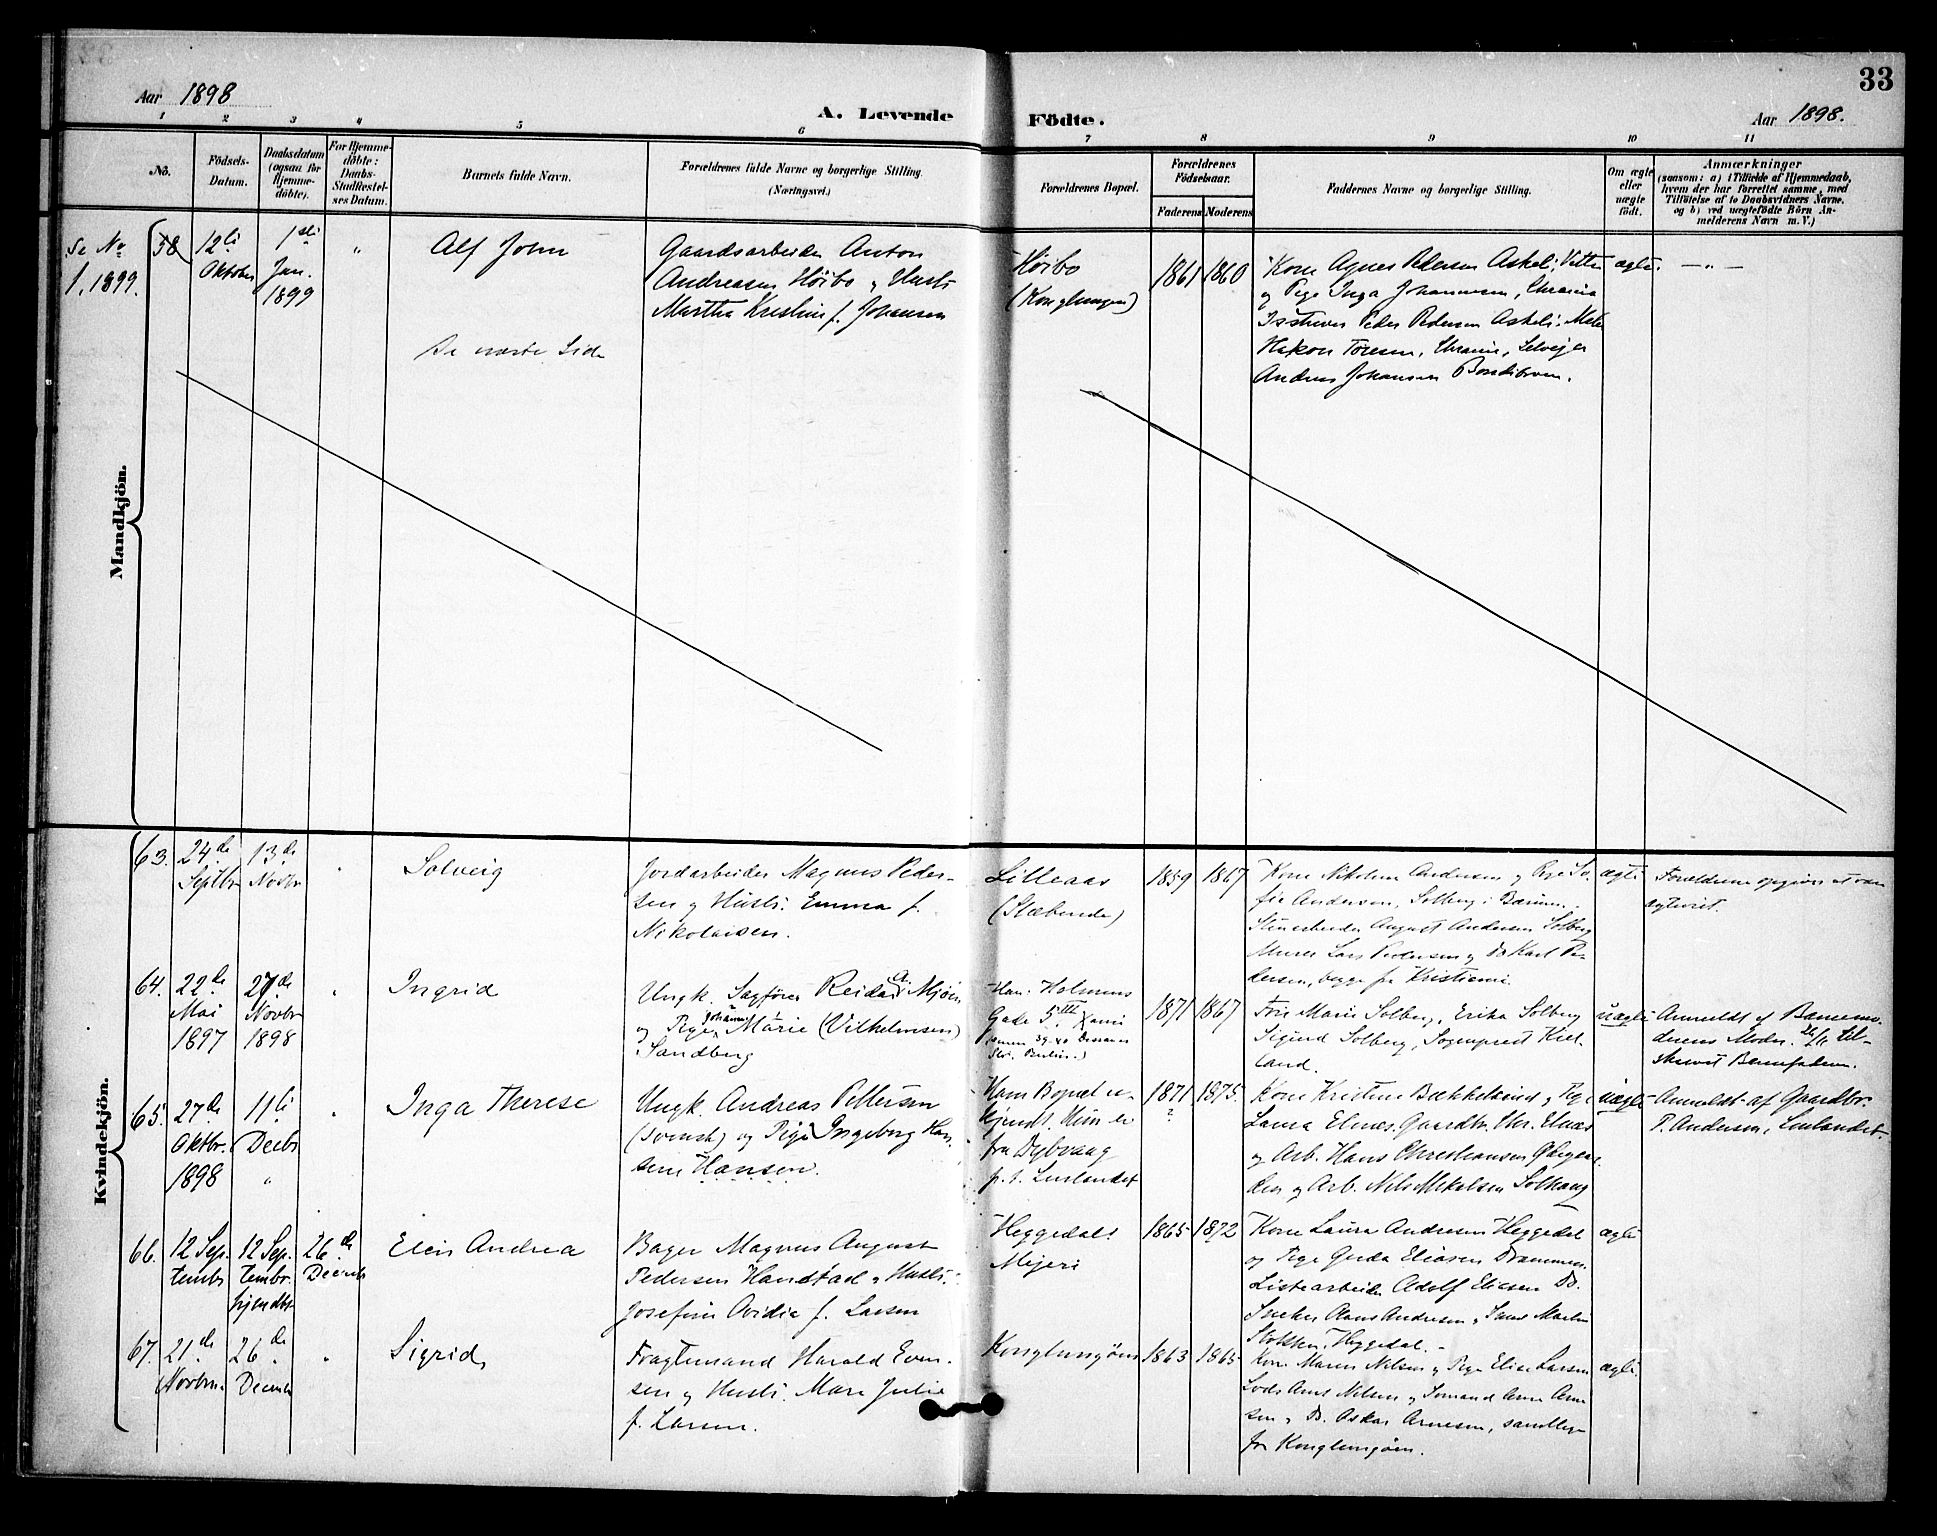 33
Aar 1898
A. Levende
Födte.
Aar 1898.
1 2 3 4 5 6 7 8 9 10 11
No.
Födsels-
Datum.
Daabsdatum
(ogsaa for
Hjemme-
döbte).
For Hjemme-
döbte:
Daabs-
Stadfæstel-
ses Datum.
Barnets fulde Navn.
Forældrenes fulde Navne og borgerlige Stilling.
(Næringsvei.)
Forældrenes Bopæl.
Forældrenes
Födselsaar.
Faderens
Moderens
Faddernes Navne og borgerlige Stilling.
Om ægte
eller
uægte
født.
Anmærkninger
(saasom: a) i Tilfælde af Hjemmedaab,
hvem der har forrettet samme, med
Tilföielse af to Daabsvidners Navne,
og b) ved uægtefödte Börn An-
melderens Navn m. V.)
Mandkjön.
Se No
1. 1899.
58
12te
Oktober
1ste
Jan.
1899
"
Alf John
Gaardsarbeider Anton
Andreasen Höibo & Hustr
Martha Kristine f. Johansen
Höibo
(Konglungen)
1861
1860
Kone Agnes Pedersen Askeli, Vettre
og Pige Inga Johannesen,
Peder Pedersen Askeli,
Hakon Toresen, Selveier
Andreas Johansen
ægte
— " —
Se næste Side
Kvindekjön.
63.
24de
Septbr
13de
Novbr
"
Solveig
Jordarbeider Magnus Peder-
sen og Hustr. Emma f.
Nikolaisen.
Lilleaas
(Slæbende)
1859
1867
Kone Nikoline Andersen og Pige So-
fie Andersen, Solberg i Bærum.
Stenarbeider August Andersen Solberg
Murer Lars Pedersen og Do Karl Pe-
dersen, begge fra Kristiania.
ægte
Forældrene opgives at være
ægteviet.
64.
22de
Mai
1897
27de
Novbr
1898
"
Ingrid
Ungk. Sagförer Reidar A. Mjöen
og Pige Johanne Marie (Vilhelmsen)
Sandberg
Han: Holmens
Gade 5 III
1871
1867
Frk Marie Solberg, Erika Solberg
Sigurd Solberg, Sogneprest Kiel-
land.
uægte
Anmeldt af Barnemo-
derens Moder. til-
skrevet Barnefaderen.
65.
27de
Oktbr.
1898
11te
Decbr
"
"
Inga Therese
Ungk. Andreas Pettersen
(svensk) og Pige Ingeborg Han-
sine Hansen.
Hans Bopæl u-
kjendt. Hun er
fra Dybvaag
p. t. Luslandet
1871
?
1875
Kone Kristine Bækkelund og Pige
Laura Elnæs, Gaardbr. Chr. Elnæs
og Arb. Hans Christiansen
og Arb. Nils Mikelsen Solhaug
uægte
Anmeldt af Gaardbr.
P. Andersen, Luslandet.
66.
12 Sep-
tembr
12 Sep-
tembr.
hjemdbt
26de
Decemb
Elen Andrea
Bager Magnus August
Pedersen Handstad & Hustr.
Josefine Ovidia f. Larsen
Heggedals
Mejeri
1865
1872
Kone Laura Andresen Heggedal
og Pige Gerda Eliasen Drammen.
Listearbeider Adolf Eliasen Do.
Sneker Hans Andresen, Martin
Heggedal.
ægte
67.
21de
Novbr
26de
Decemb
"
Sigrid
Fragtemand Harald Even-
sen og Hustr. Mare Julie
f. Larsen.
Konglungöen
1863
1865
Kone Maren Nilsen og Pige Elise Larsen
Lods Anst Nilsen og Sömand Arne Arne-
sen og Do. Oskar Arnesen, samtlige
fra Konglungöen.
ægte